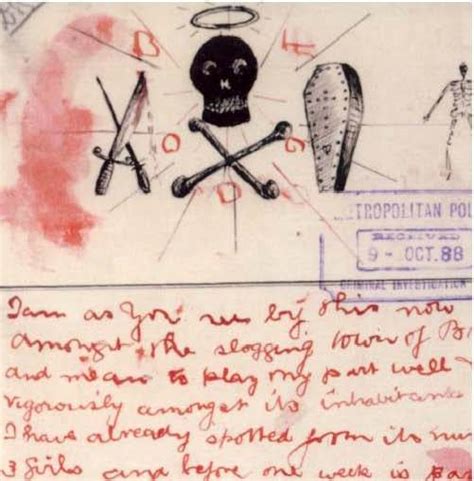 B F
O G
D
TROPOLITAN POL
RECEIVED
9 - OCT. 88
CRIMINAL INVESTIGATION
I am as You see by this now
amongst the slogging town of B
and mean to play my part well
vigorously amongst its inhabitants
I have already spotted from its
3 girls and before one week is pas